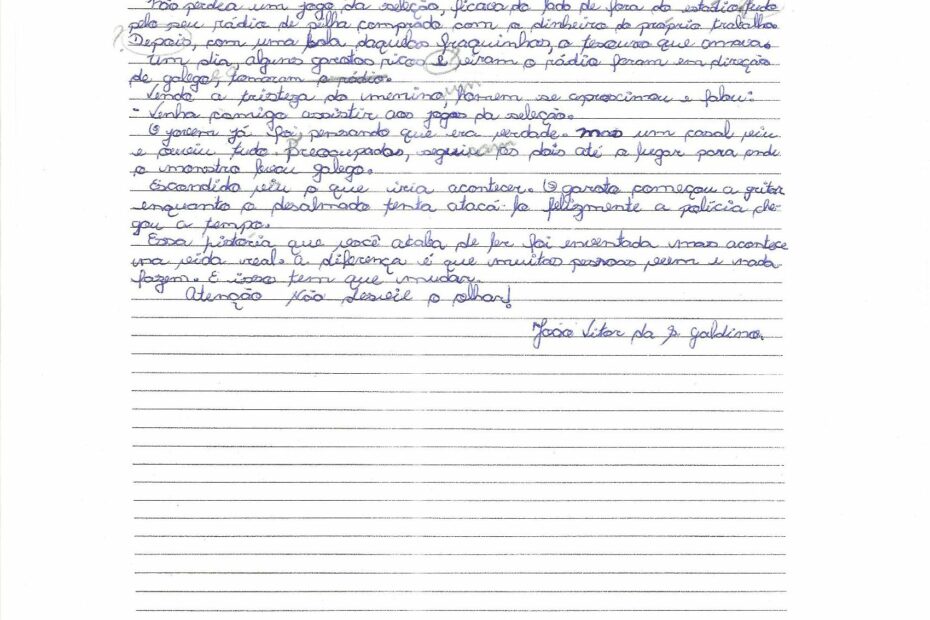 Não perdia um jogo da seleção, ficava do lado de fora do estádio tudo
pelo seu rádio de pilha comprado com o dinheiro do próprio trabalho
? Depois, com uma bola daquelas fraquinhas, o tesouro que amava.
Um dia, alguns garotos ricos e viram o rádio foram em direção
de galego, tomaram o rádio.
Vendo a tristeza do menino, um homem se aproximou e falou:
- Venha comigo assistir aos jogos da seleção.
O jovem já foi pensando que era verdade. mas um casal viu
e ouviu tudo. Preocupados, seguiram os dois até o lugar para onde
o monstro levou galego.
Escondido viu o que iria acontecer. O garoto começou a gritar
enquanto o desalmado tenta atacá-lo felizmente a polícia che-
gou a tempo.
Essa história que você acaba de ler foi inventada mas acontece
na vida real. A diferença é que muitas pessoas veem e nada
fazem. E isso tem que mudar.
Atenção Não desvie o olhar!
João Vitor da S. Galdino.